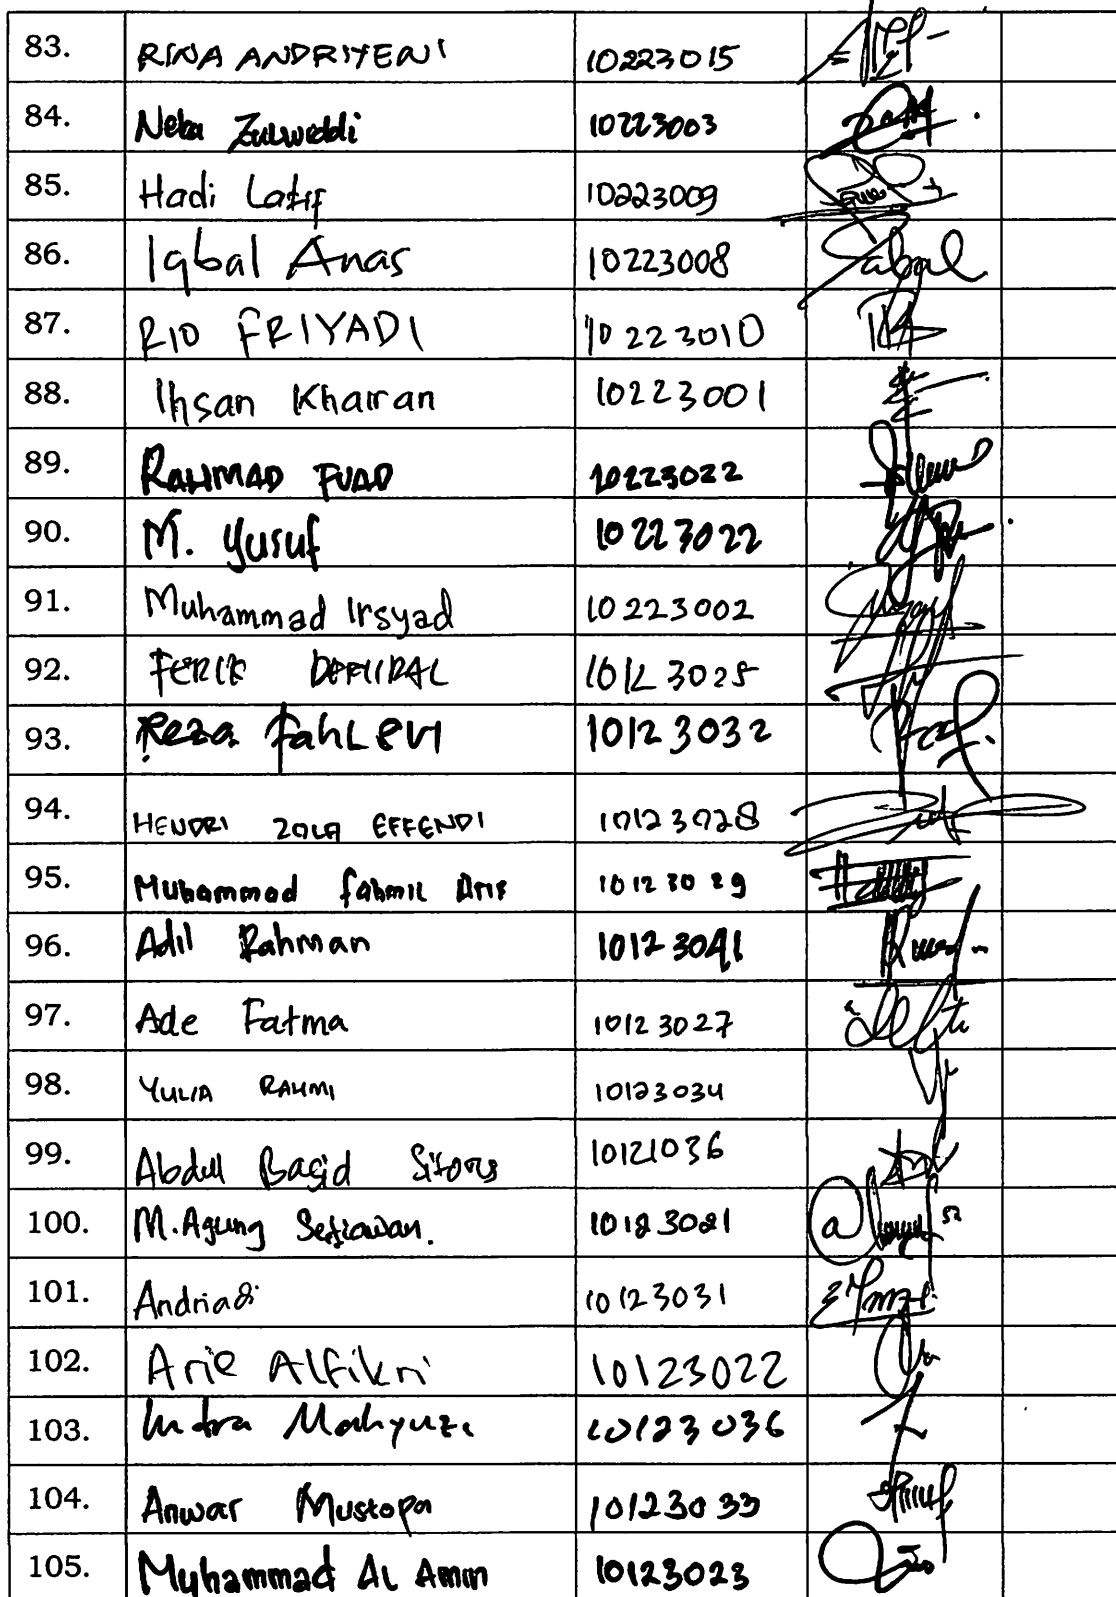 83. RINA ANDRIYENI 10223015
84. Neba 10223003
85. Hadi Latif 10223009
86. Iqbal Anas 10223008
87. RIO FRIYADI 10223010
88. Ihsan Khairan 10223001
89. RAHMAD FUAD 10223022
90. M. Yusuf 10223022
91. Muhammad Irsyad 10223002
92. FERIK 10123025
93. Reza fahLevi 10123032
94. HENDRI ZOLA EFFENDI 10123028
95. Muhammad fahmil Aris 10123029
96. Adil Rahman 10123041
97. Ade Fatma 10123027
98. YULIA RAHMI 10123034
99. Abdul Basid Sitorus 10121036
100. M. Agung Setiawan. 10123021
101. Andriadi 10123031
102. Arie Alfikri 10123022
103. Indra Mahyuzi 10123036
104. Anwar Mustopa 10123033
105. Muhammad AL Amin 10123023